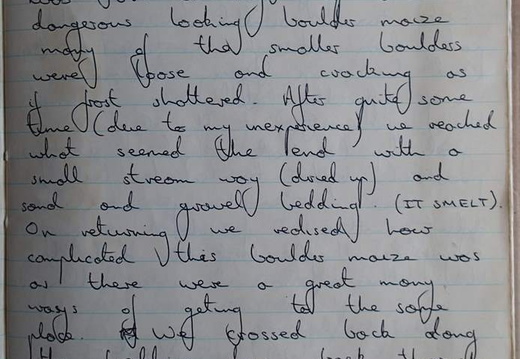 dangerous looking boulder maize
many of the smaller boulders
were loose and cracking as
if frost shattered. After quite some
time (due to my inexperience) we reached
what seemed the end with a
small stream way (dired up) and
sand and gravel bedding. (IT SMELT).
On returning we realised how
complicated this boulder maize was
as there were a great many
ways of geting to the same
place. We crossed back along